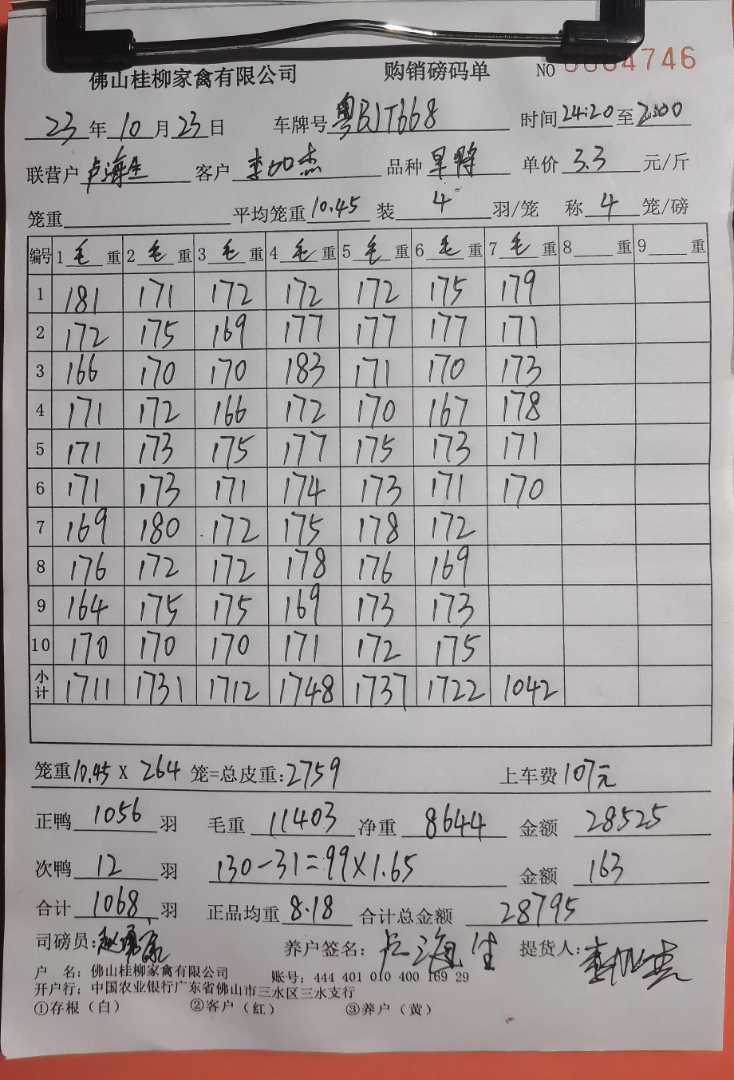 佛山桂柳家禽有限公司 购销磅码单 NO 0004746
23 年 10 月 23 日 车牌号 粤BJT668 时间 24:20 至 2:00
联营户 卢海生 客户 品种 单价 3.3 元/斤
笼重 平均笼重 10.45 装 4 羽/笼 称 4 笼/磅
编号 1 毛 重 2 毛 重 3 毛 重 4 毛 重 5 毛 重 6 毛 重 7 毛 重 8 重 9 重
1 181 171 172 172 172 175 179
2 172 175 169 177 177 177 171
3 166 170 170 183 171 170 173
4 171 172 166 172 170 167 178
5 171 173 175 177 175 173 171
6 171 173 171 174 173 171 170
7 169 180 172 175 178 172
8 176 172 172 178 176 169
9 164 175 175 169 173 173
10 170 170 170 171 172 175
小计 1711 1731 1712 1748 1737 1722 1042
笼重 10.45 X 264 笼=总皮重: 2759 上车费 107元
正鸭 1056 羽 毛重 11403 净重 8644 金额 28525
次鸭 12 羽 130-31=99×1.65 金额 163
合计 1068 羽 正品均重 8.18 合计总金额 28795
司磅员: 养户签名: 卢海生 提货人:
户 名: 佛山桂柳家禽有限公司 账号: 444 401 010 400 169 29
开户行: 中国农业银行广东省佛山市三水区三水支行
①存根（白） ②客户（红） ③养户（黄）